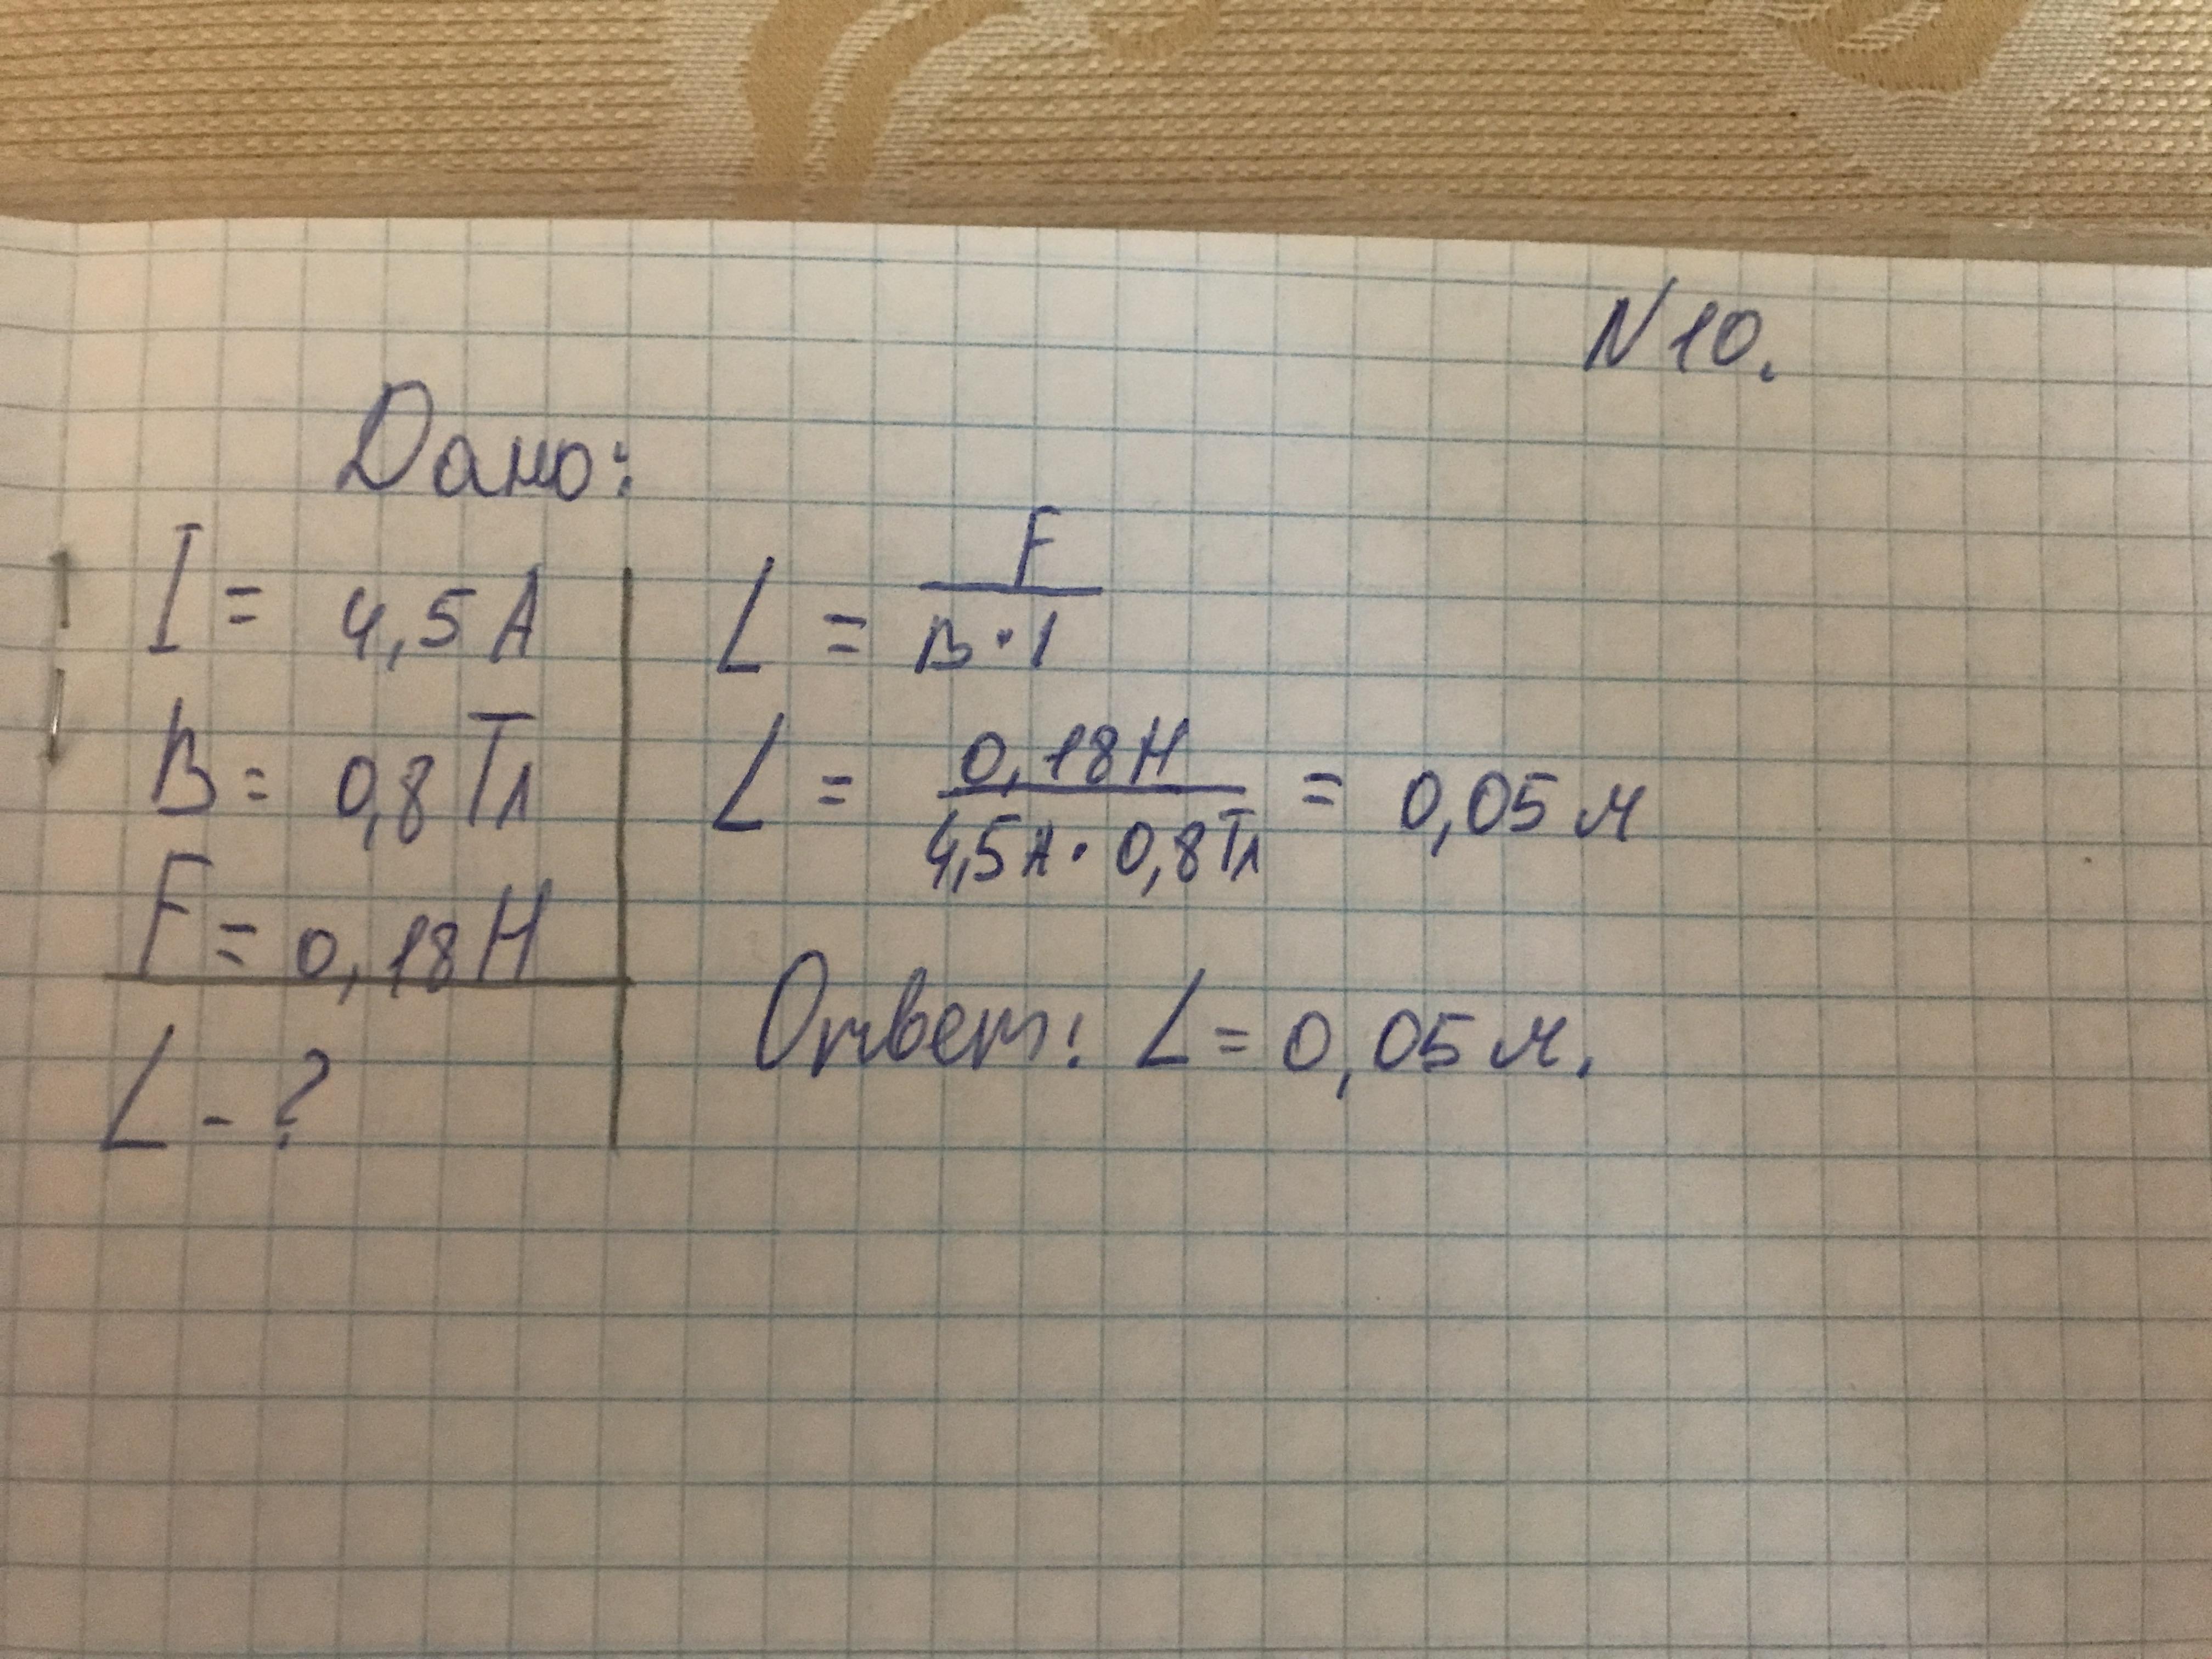 N10.
Дано:
I = 4,5 А
B = 0,8 Тл
F = 0,18 Н
L - ?
L = F / B · I
L = 0,18 Н / 4,5 А · 0,8 Тл = 0,05 м
Ответ: L = 0,05 м.